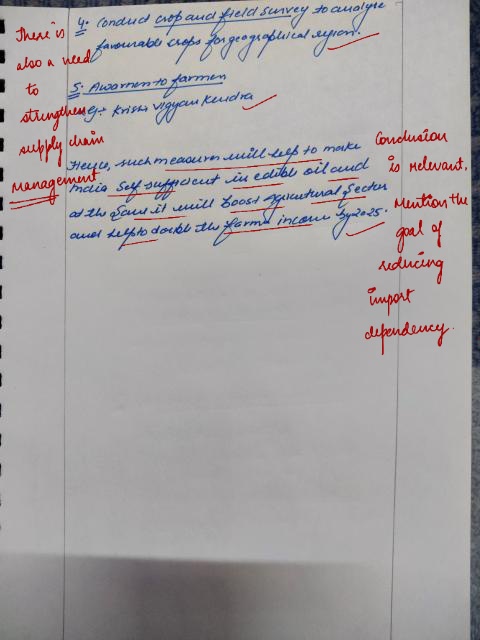 4. Conduct crop and field survey to analyse
favourable crops for geographical region.
5. Awarness to farmers
eg:- Krishi Vigyan Kendra
Hence, such measures will help to make
India self sufficient in edible oil and
at the same it will boost agricultural sector
and help to double the farms income by 2025.
There is
also a need
to
strengthen
supply chain
management
Conclusion
is relevant.
Mention the
goal of
reducing
import
dependency.